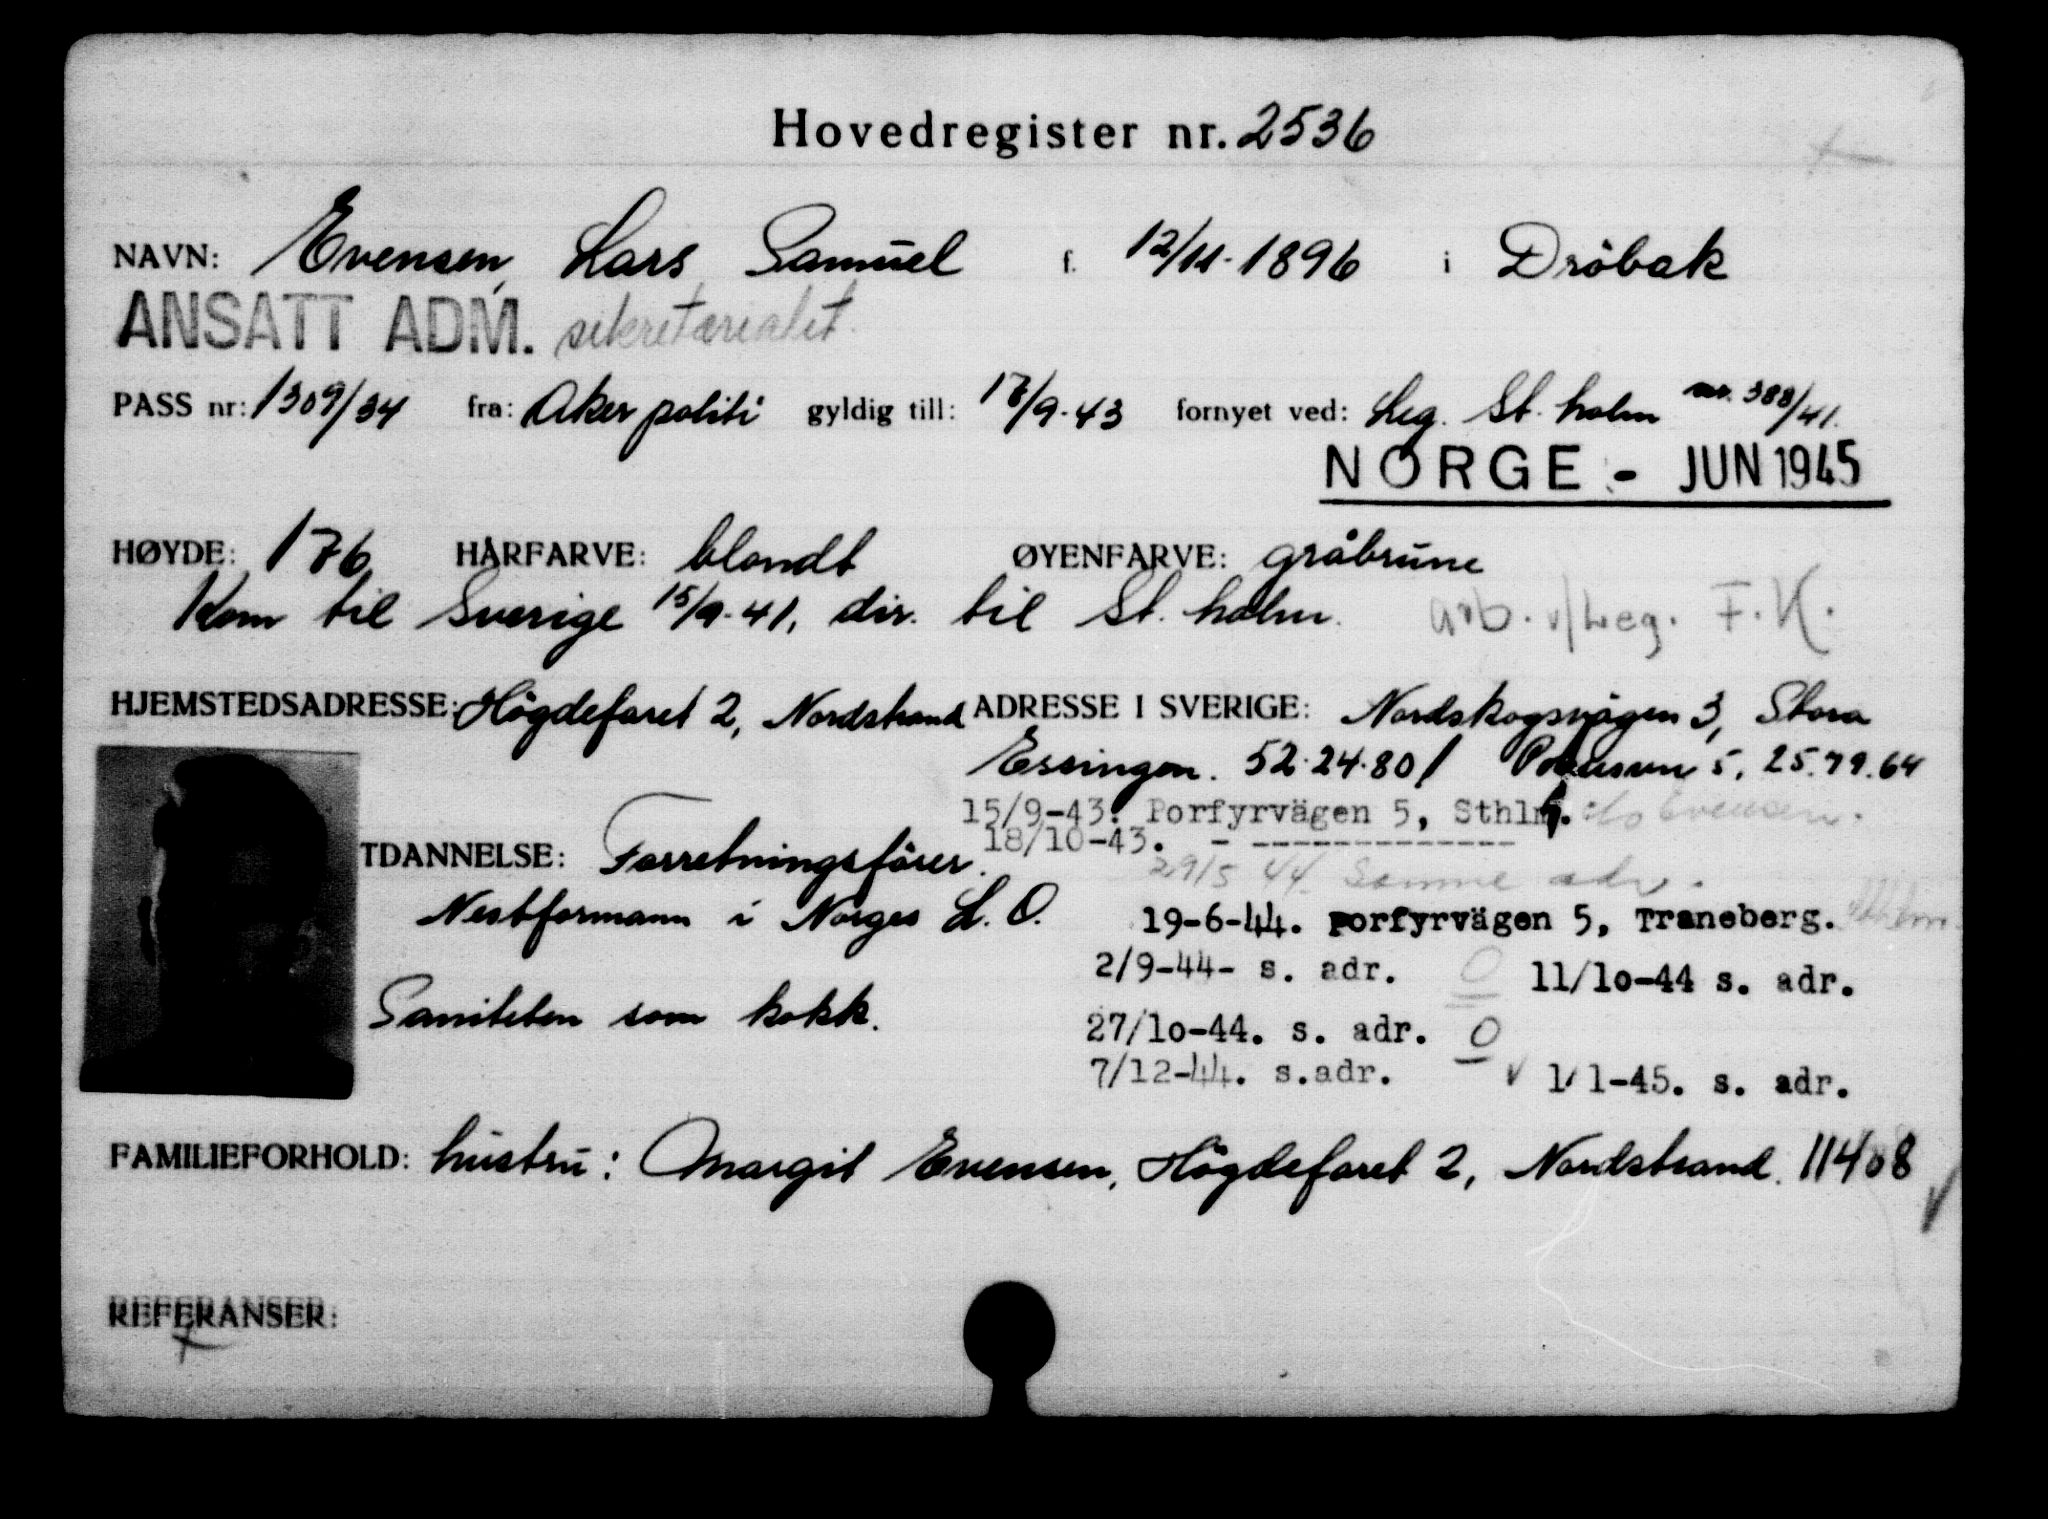 Hovedregister nr. 2536
NAVN: Evensen, Lars Samuel f. 12/11-1896 i Dröbak
ANSATT ADM. sekretærialet.
PASS nr: 1309/34 fra: Aker politi gyldig till: 17/9-43 fornyet ved: Leg. St. holm nr. 388/41.
NORGE - JUN 1945
HØYDE: 176 HÅRFARVE: blondt ØYENFARVE: gråbrune
Kom til Sverige 15/9-41, dir. til St. holm. arb. v/Leg. F.K.
HJEMSTEDSADRESSE: Högdefaret 2, Nordstrand
ADRESSE I SVERIGE: Nordskogsvägen 3, Stora
Essingen. 52.24.80 / 5, 25.79.64
15/9-43. Porfyrvägen 5, Sthlm. c/o Evensen.
18/10-43. - -------------
29/5 44. Samme adr.
19-6-44. porfyrvägen 5, Traneberg. Sthlm.
2/9-44- s. adr. 0 11/10-44 s. adr.
27/10-44. s. adr. 0
7/12-44. s.adr. 1/1-45. s. adr.
TDANNELSE: Forretningsförer.
Nestformann i Norges L.O.
Saniteten som kokk.
FAMILIEFORHOLD: hustru: Margit Evensen, Högdefaret 2, Nordstrand. 11408
REFERANSER: